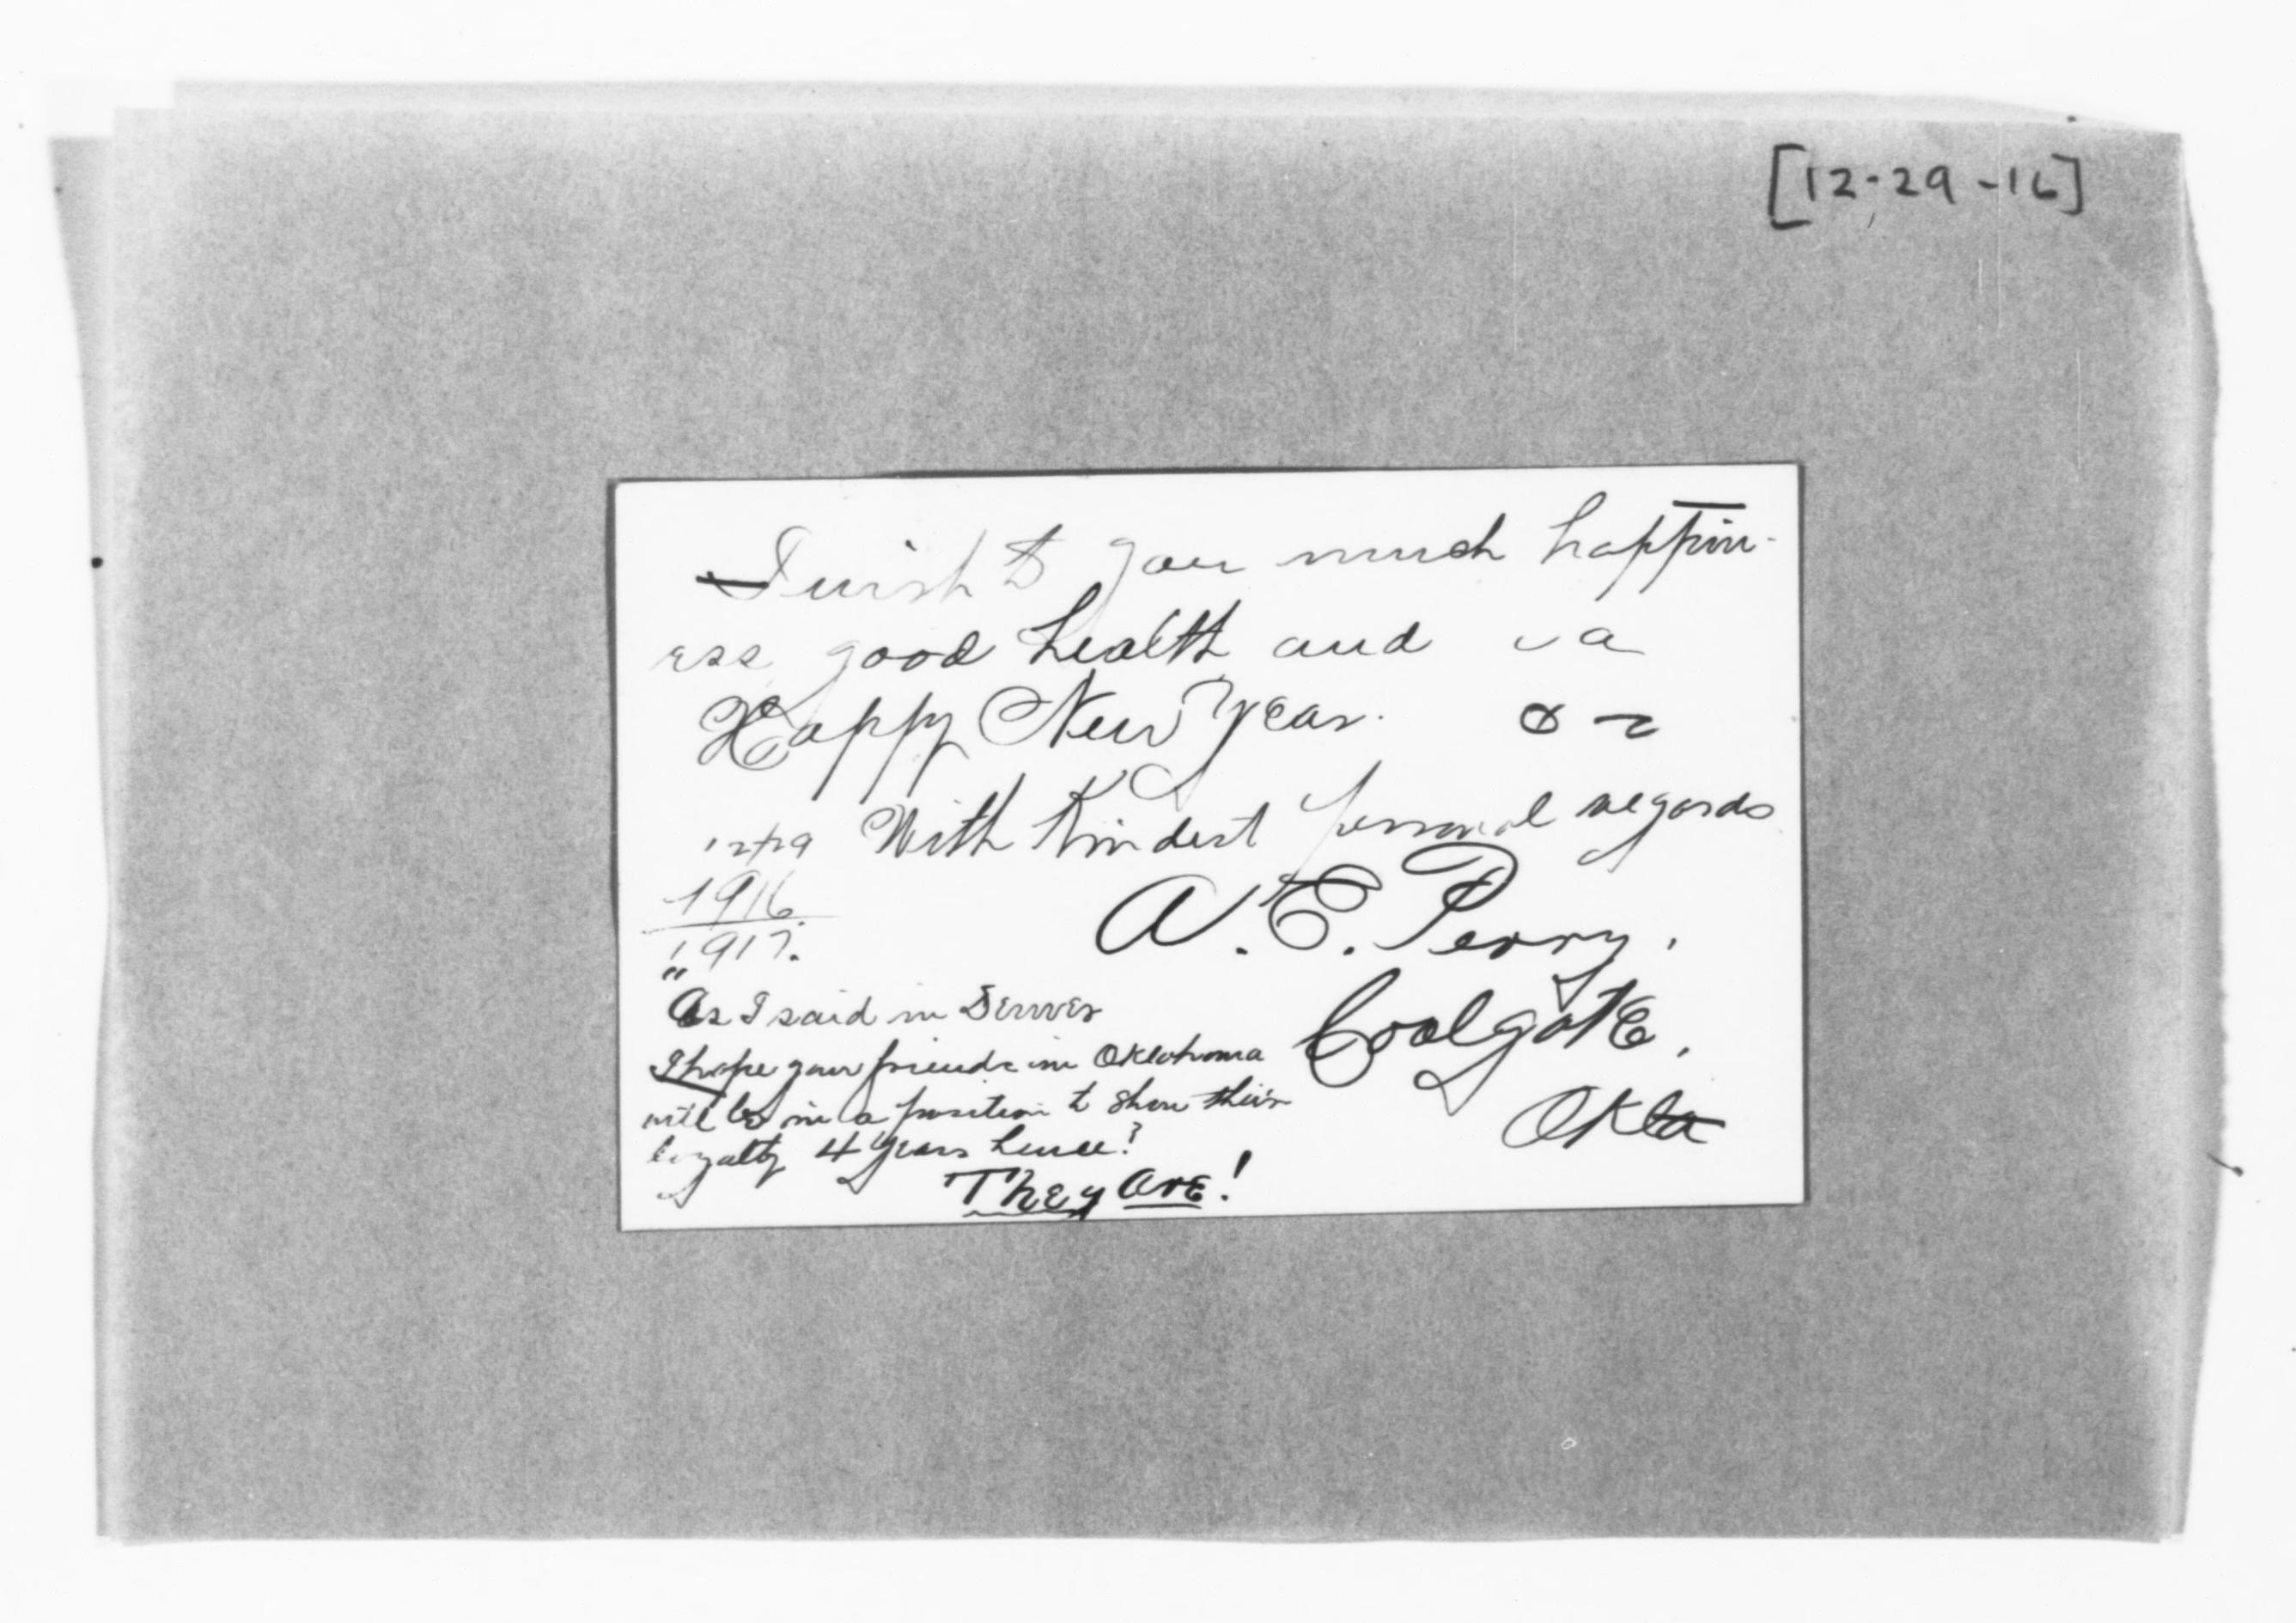 [12-29-16]
I wish to you much happin-
ess good health and a
Happy New Year.
With Kindest personal regards
12/29
1916
1917.
A. E. Perry.
Coalgate,
Okla
"As I said in Denver
I hope your friends in Oklahoma
will be in a position to show their
loyalty 4 years hence?
They are!